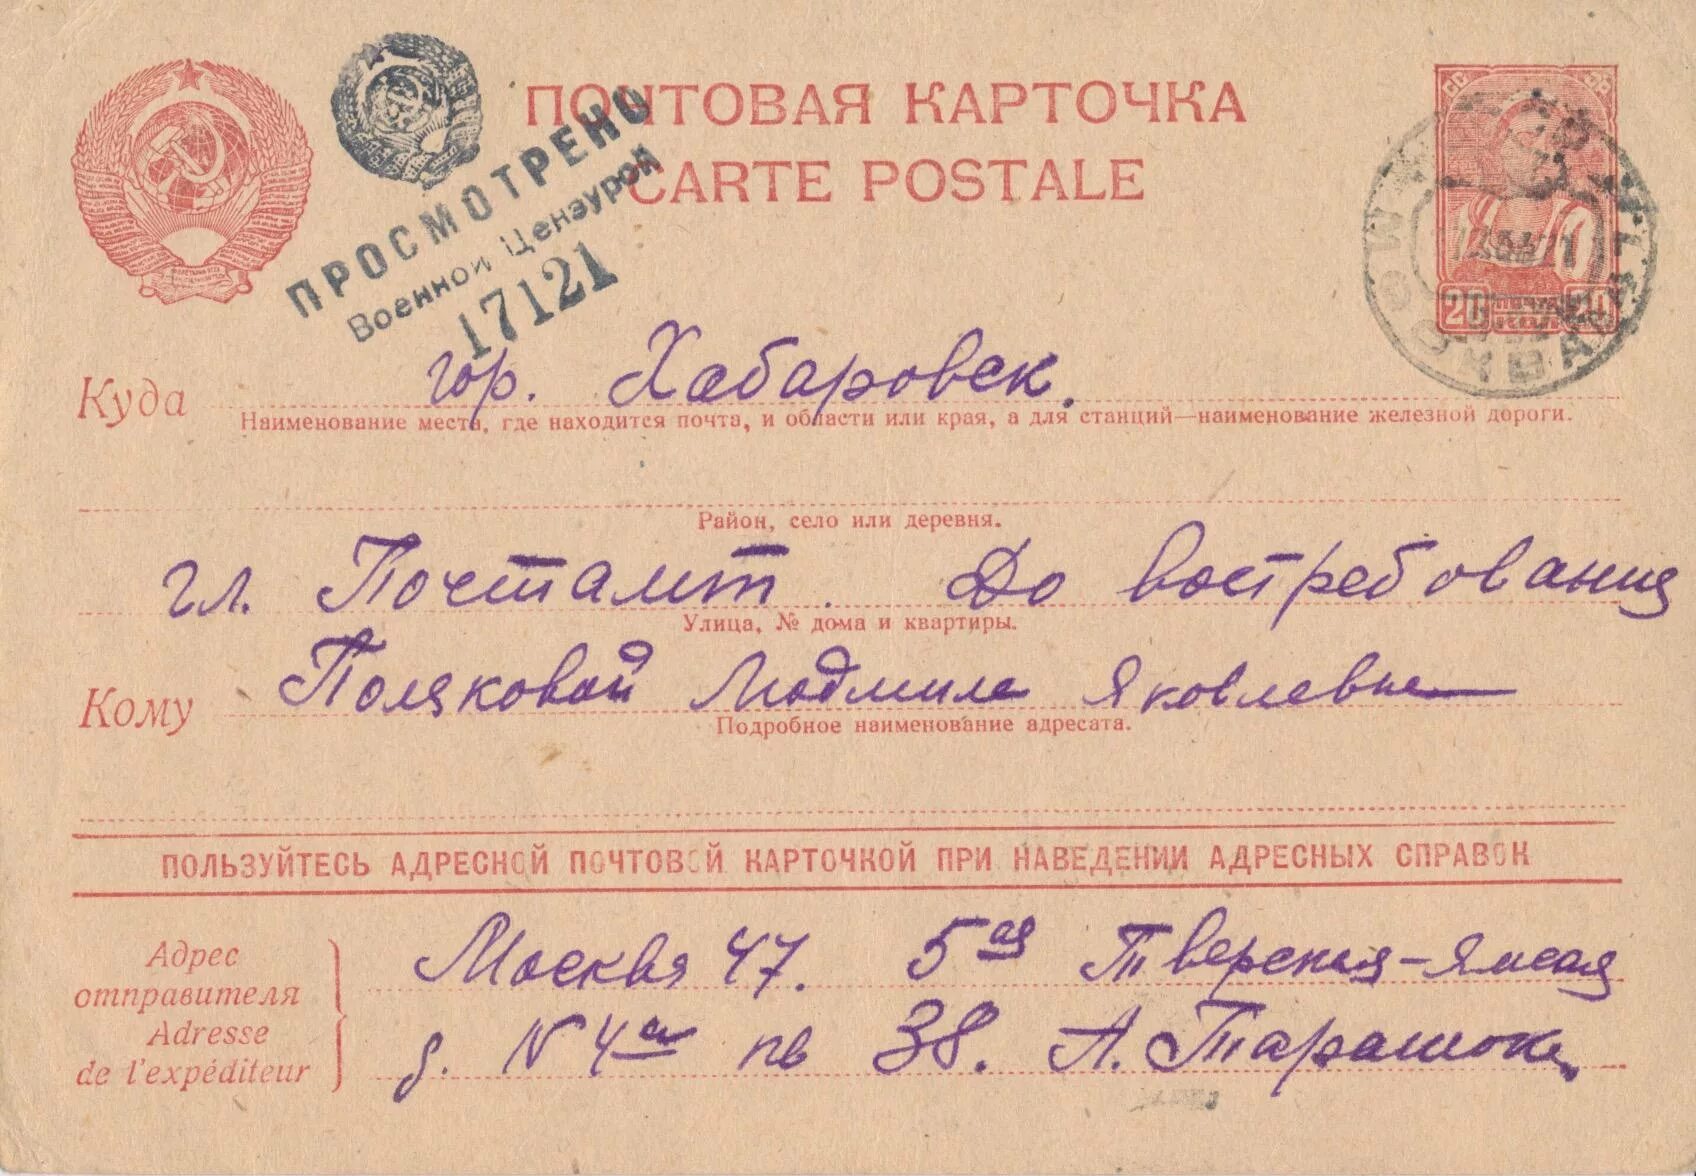 ПОЧТОВАЯ КАРТОЧКА
CARTE POSTALE
ПРОСМОТРЕНО
Военной Цензурой
17121
20 ПОЧТА 20
МОСКВА
Куда гор. Хабаровск.
Наименование места, где находится почта, и области или края, а для станций—наименование железной дороги.
Район, село или деревня.
гл. Почтамт. До востребования
Улица, № дома и квартиры.
Кому Поляковой Людмиле Яковлевне
Подробное наименование адресата.
ПОЛЬЗУЙТЕСЬ АДРЕСНОЙ ПОЧТОВОЙ КАРТОЧКОЙ ПРИ НАВЕДЕНИИ АДРЕСНЫХ СПРАВОК
Адрес отправителя
Adresse de l'expéditeur
Москва 47. 5ая Тверская-Ямская
д. N 4а кв 38. А.